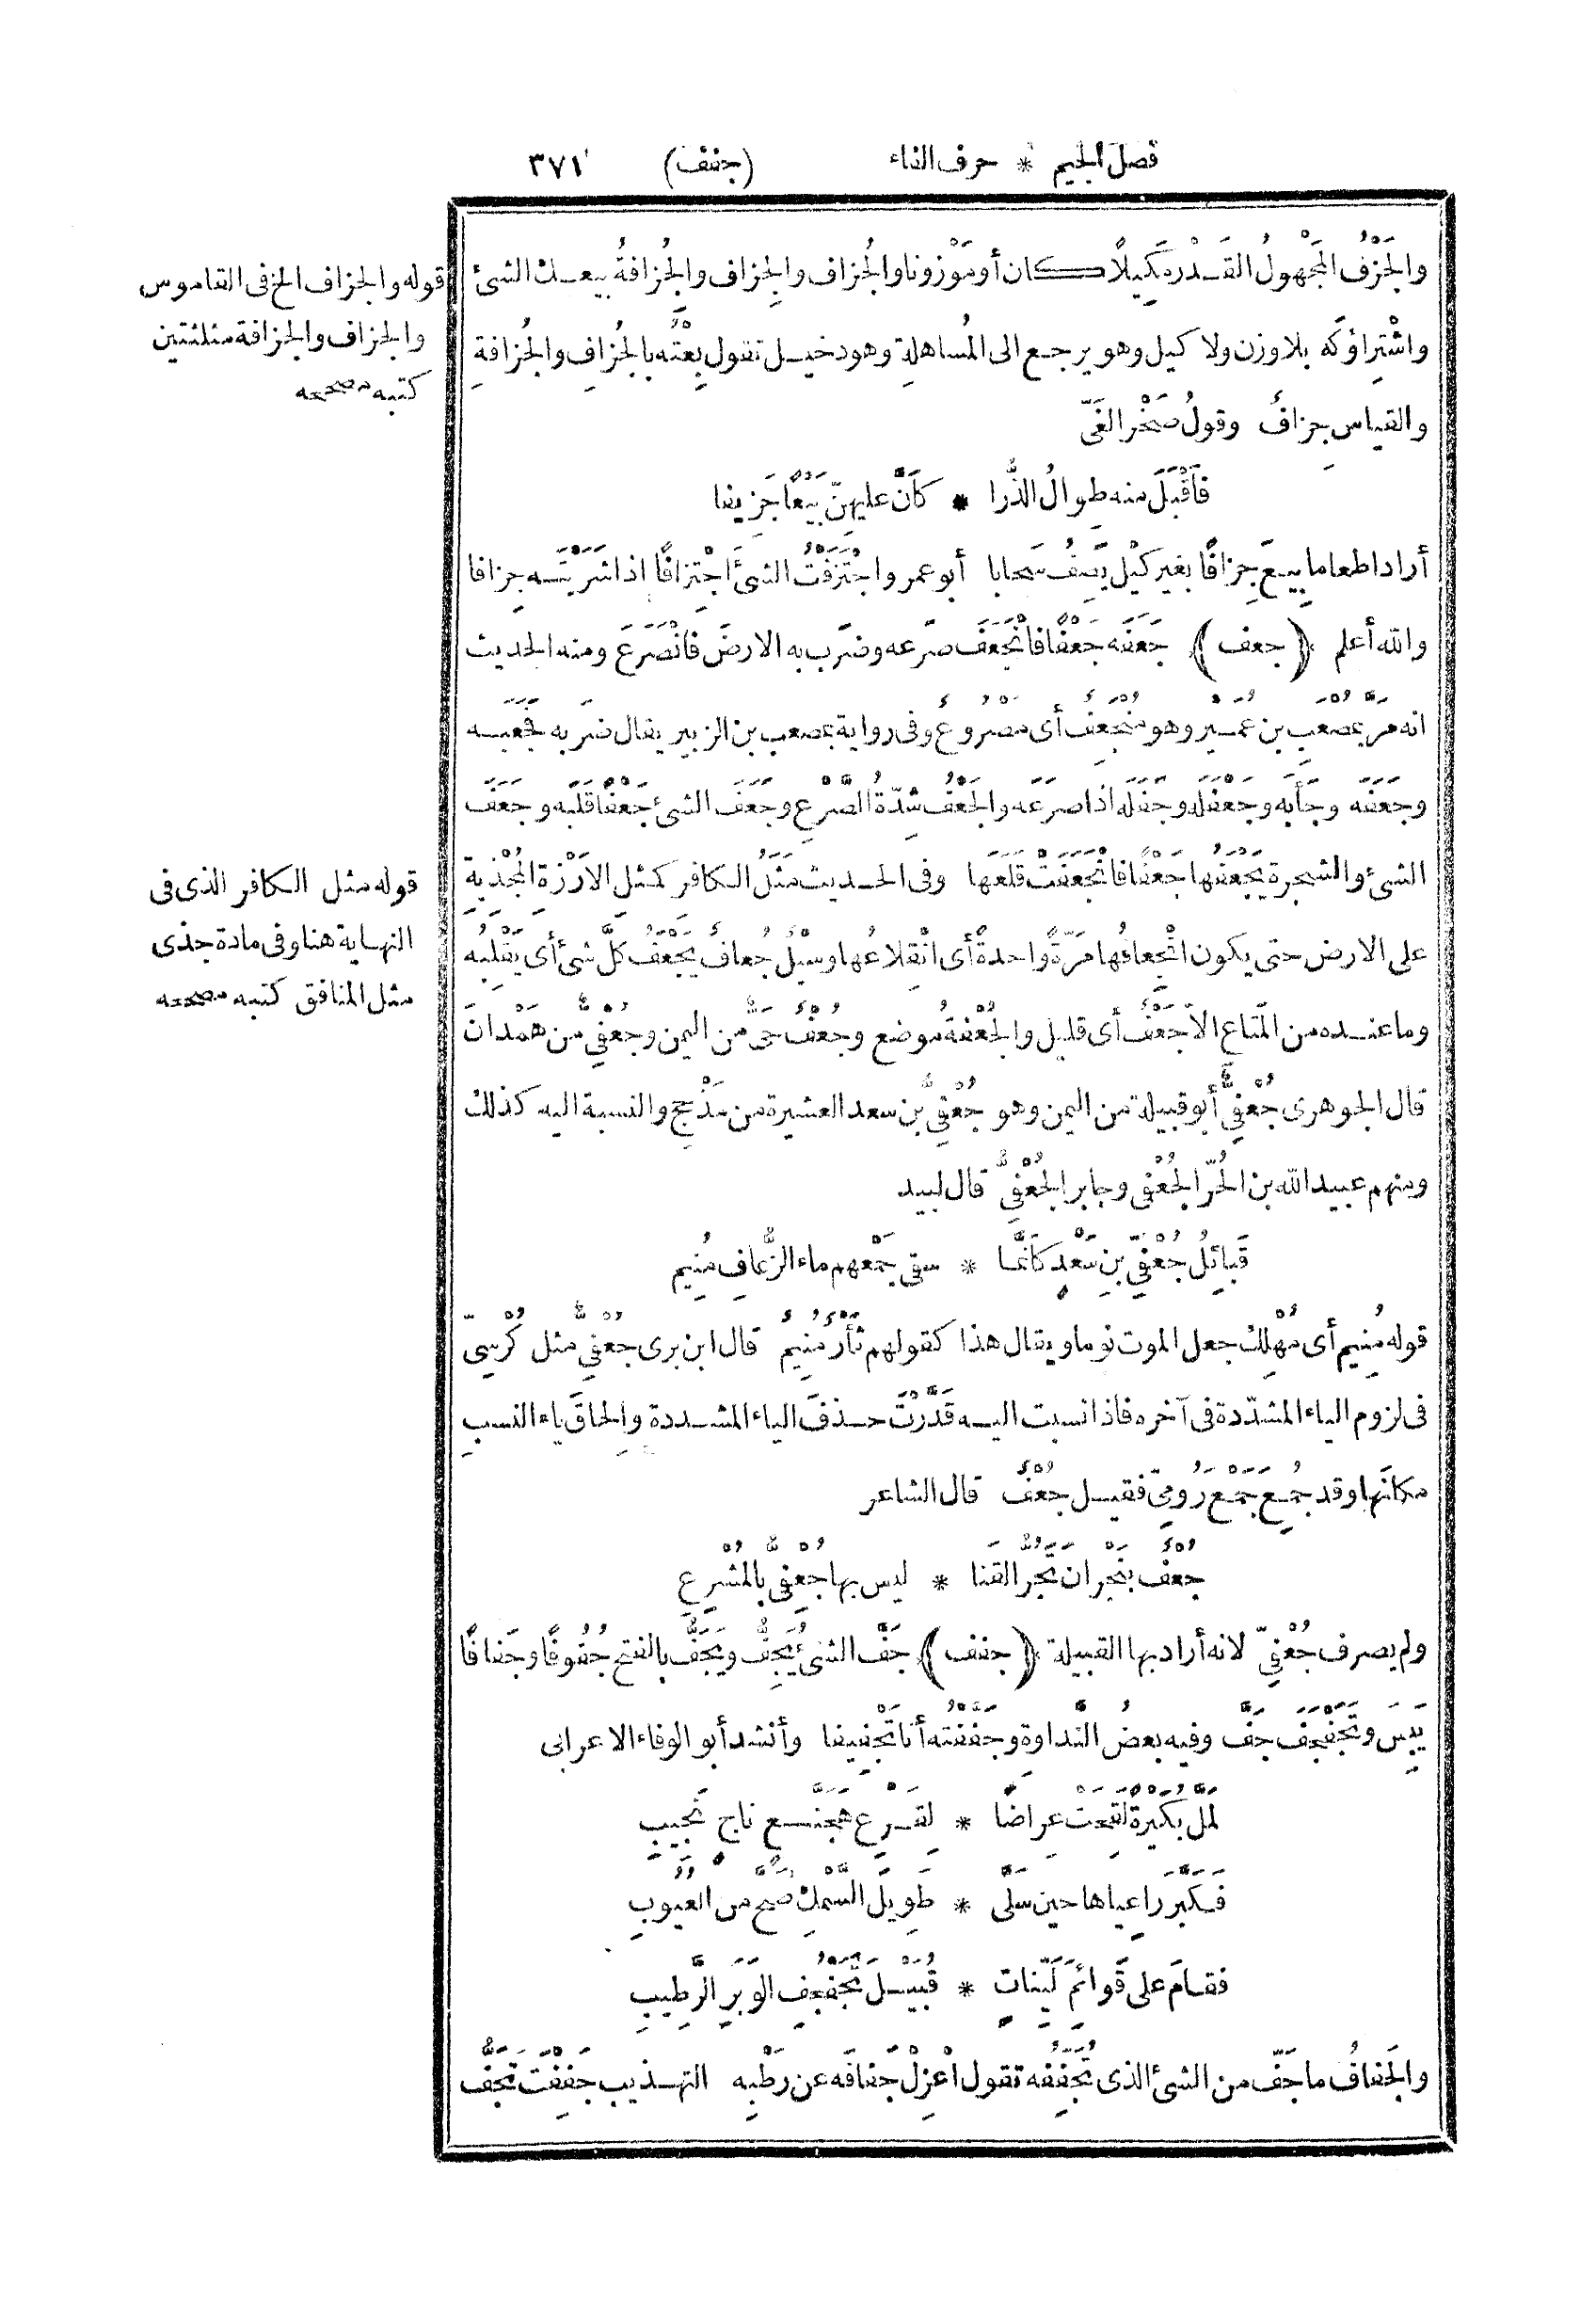 فصل الجيم * حرف الفاء (جفف) ٣٧١
والجَزْفُ المَجْهولُ القَدْر مَكِيلًا كان أو مَوْزونا والجُزاف والجِزاف والجُزافةُ بيعك الشئ
واشْتِراؤكَه بلا وزن ولا كيل وهو يرجع الى المُساهلة وهو دخيل تقول بِعْتُه بالجُزافِ والجُزافةِ
والقياس جِزافٌ وقولُ صَخْر الغَىّ
فأَقْبَلَ منه طِوالُ الذُّرا * كأَنَّ عليهِنّ بَيْعًا جَزِيفا
أراد اطعاما بِيعَ جِزافًا بغير كَيْل يَصِفُ سَحابا أبو عمرو اجْتَزَفْتُ الشئَ اجْتِزافًا اذا شَرَيْتَه جِزافا
والله أعلم (جعف) جَعَفَه جَعْفًا فانْجَعَفَ صرَعه وضرَب به الارضَ فانْصَرَعَ ومنه الحديث
انه مَرَّ بمُصْعَبِ بن عُمَيْر وهو مُنْجَعِفٌ أى مَصْرُوعٌ وفى رواية بمصعب بن الزبير يقال ضرَبه فجَعَبَه
وجَعَفَه وجَأَبَه وجَعْفَلَه وجَفَلَه اذا صَرَعَه والجَعْفُ شِدّةُ الصَّرْعِ وجَعَفَ الشئَ جَعْفًا قَلَبَه وجَعَفَ
الشئَ والشجرة يَجْعَفُها جَعْفًا فانْجَعَفَتْ قلَعَها وفى الحديث مَثَلُ الكافر كمثل الأَرْزةِ المُجْذِيةِ
على الارض حتى يكون انْجِعافُها مَرّةً واحدةً أى انْقِلاعُها وسَيْلٌ جُعافٌ يَجْعَفُ كلَّ شئ أى يَقْلِبُه
وما عنده من المَتاع الّا جَعْفٌ أى قليل والجُعْفةُ موضع وجُعْفٌ حَىٌّ من اليمن وجُعْفِىٌّ من هَمْدانَ
قال الجوهرى جُعْفِىٌّ أبو قبيلة من اليمن وهو جُعْفِىُّ بن سعد العشيرة من مَذْحِجٍ والنسبة اليه كذلك
ومنهم عبيد الله بن الحُرّ الجُعْفِى وجابر الجُعْفِىُّ قال لبيد
قَبائِلُ جُعْفِىِّ بنِ سَعْدٍ كأَنَّما * سقى جَمْعَهم ماء الزُّعافِ مُنِيم
قوله مُنِيم أى مُهْلِك جعل الموت نوما ويقال هذا كقولهم ثَأْرٌ مُنِيمٌ قال ابن برى جُعْفِىٌّ مثل كُرْسِىّ
فى لزوم الياء المشدّدة فى آخره فاذا نسبت اليه قَدَّرْتَ حذفَ الياء المشددة والحاقَ ياء النسبِ
مكانَها وقد جُمِعَ جَمْعَ رُومِىّ فقيل جُعْفٌ قال الشاعر
جُعْفٌ بنَجْرانَ تَجُرُّ القَنا * ليس بها جُعْفِىٌّ بالمُشْرِعِ
ولم يصرف جُعْفِىّ لانه أراد بها القبيلة (جفف) جَفَّ الشئُ يَجِفُّ ويَجَفُّ بالفتح جُفُوفًا وجَفافًا
يَبِسَ وتَجَفْجَفَ جَفَّ وفيه بعضُ النَّداوة وجَفَّفْتُه أنا تَجْفِيفا وأنشد أبو الوفاء الاعرابى
لمَلَّ بُكَيْرةً لَقِحَتْ عِراضًا * لِقَرْعِ هَجَنَّعٍ ناجٍ نَجِيبِ
فكَبَّرَ راعِياها حين سَلَّى * طَوِيلَ السَّمْكِ صَحَّ من العُيُوبِ
فقامَ على قَوائمَ لَيِّناتٍ * قُبَيْلَ تَجَفْجُفِ الوَبَرِ الرَّطِيبِ
والجَفافُ ما جَفَّ من الشئ الذى تُجَفِّفُه تقول اعْزِلْ جَفافَه عن رَطْبِه التهذيب جَفِفْتَ تَجَفُّ
قوله والجزاف الخ فى القاموس
والجزاف والجزافة مثلثتين
كتبه مصححه
قوله مثل الكافر الذى فى
النهاية هنا وفى مادة جذى
مثل المنافق كتبه مصححه